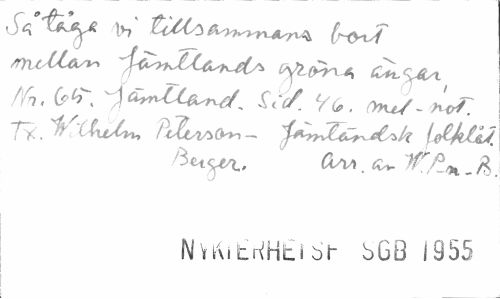 Så tåga vi tillsammans bort
mellan Jämtlands gröna ängar,
Nr. 65. Jämtland. Sid. 46. mel-not.
Tx. Wilhelm Peterson- Jämtländsk folklåt.
Berger. Arr. av W.P-n-B.
NYKTERHETSF SGB 1955